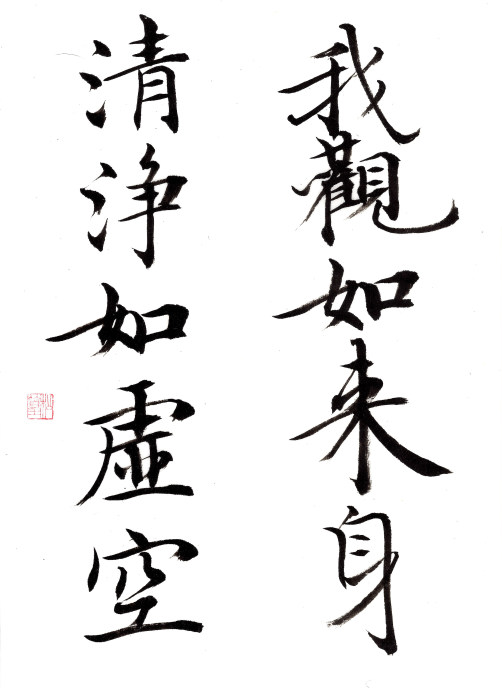 我觀如来身
清浄如虚空